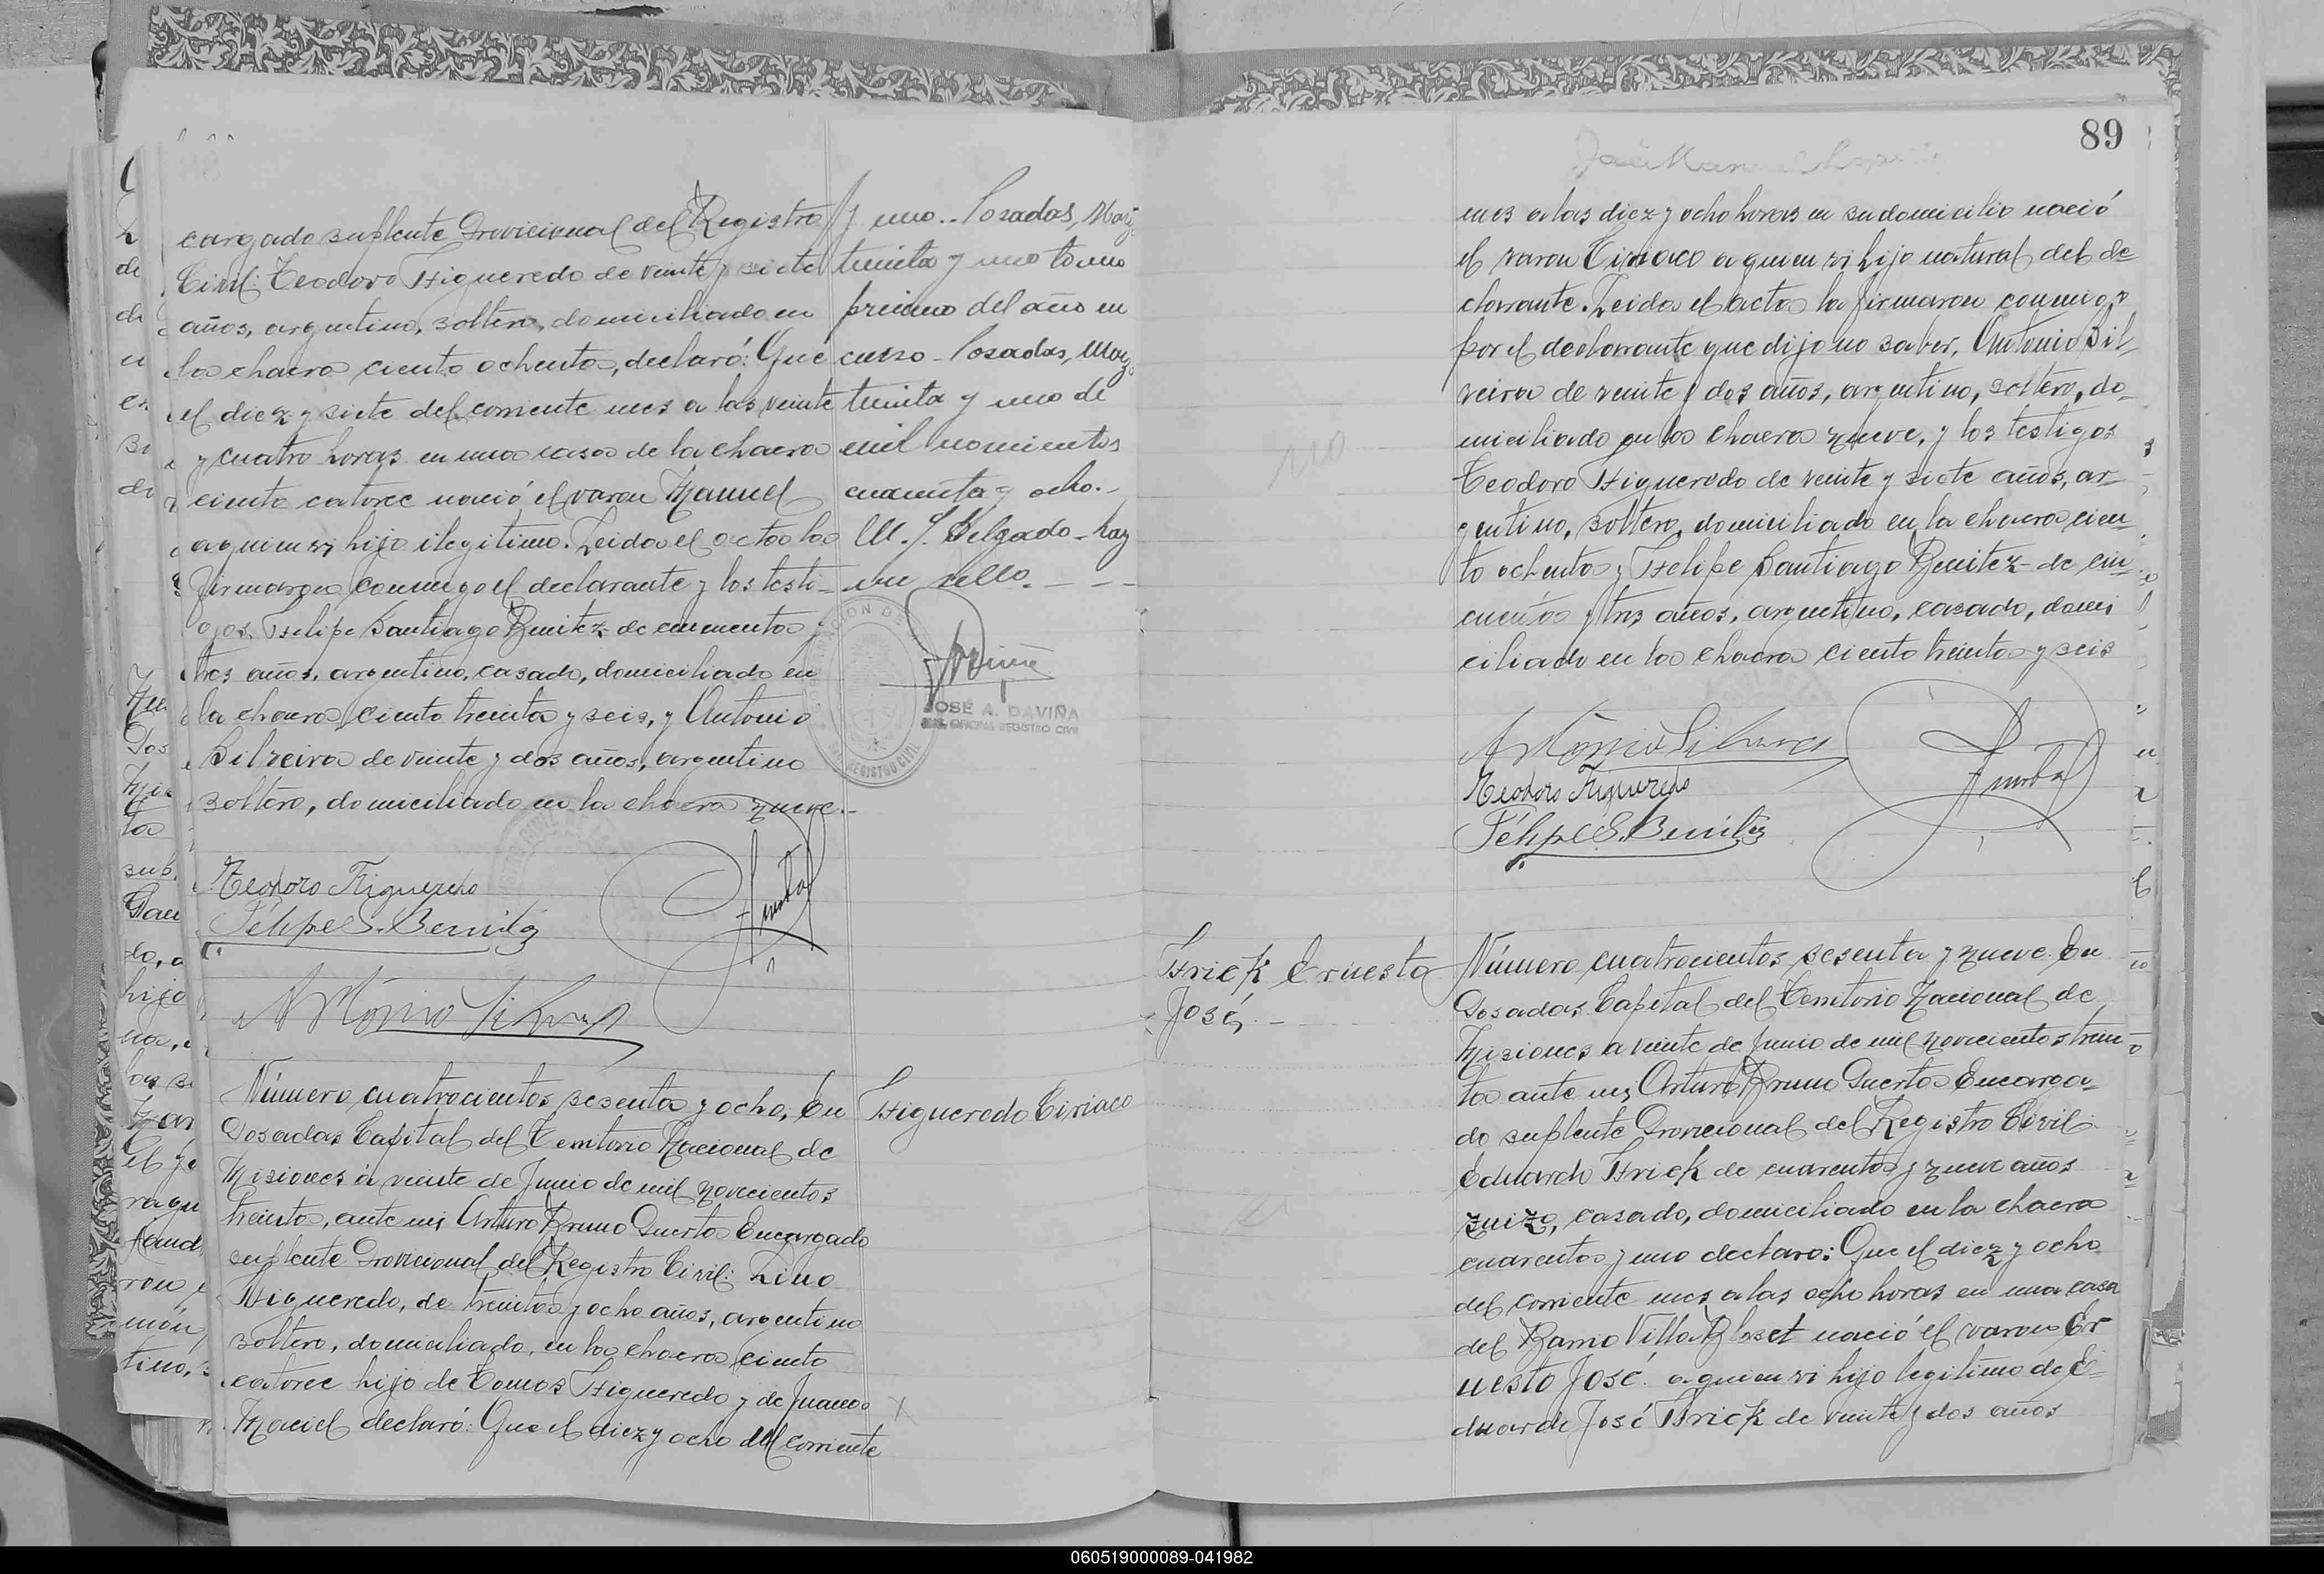 cargado suplente Provicional del Registro
Civil: Teodoro Figueredo de veinte y siete
años, argentino, soltero, domiciliado en
la chacra ciento ochenta, declaró: Que
el diez y siete del corriente mes a las veinte
y cuatro horas en una casa de la chacra
ciento catorce nació el varon Manuel
a quien vi hijo ilegitimo. Leida el acta la
firmaron conmigo el declarante y los testi-
gos, Felipe Santiago Benitez de cincuenta y
tres años, argentino, casado, domiciliado en
la chacra ciento treinta y seis, y Antonio
Silveira de veinte y dos años, argentino
soltero, domiciliado en la chacra nueve.-
Teodoro Figueredo
Felipe S. Benitez
Antonio Silveira
y uno.. Posadas, May.
treinta y uno tomo
primero del año en
curso - Posadas, Mayo
treinta y uno de
mil novecientos
cuarenta y ocho.-
M. J. Delgado - hay
un sello. - - -
JOSÉ A. DAVIÑA
REGISTRO CIVIL
Número cuatrocientos sesenta y ocho, En
Posadas Capital del Territorio Nacional de
Misiones á veinte de Junio de mil novecientos
treinta, ante mi Arturo Bruno Puerta Encargado
suplente Provicional del Registro Civil: Lino
Figueredo, de treinta y ocho años, argentino
soltero, domiciliado, en la chacra ciento
catorce hijo de Tomas Figueredo y de Juana
Maciel declaró: Que el diez y ocho del corriente
Figueredo Ciriaco
89
José Manuel
mes a las diez y ocho horas en su domicilio nació
el varon Ciriaco a quien vi hijo natural del de
clarante. Leida el acta la firmaron conmigo,
por el declarante que dijo no saber, Antonio Sil
veira de veinte y dos años, argentino, soltero, do-
miciliado en la chacra nueve, y los testigos
Teodoro Figueredo de veinte y siete años, ar-
gentino, soltero, domiciliado en la chacra cien
to ochenta y Felipe Santiago Benitez de cin
cuenta y tres años, argentino, casado, domi
ciliado en la chacra ciento treinta y seis
no
Antonio Silveira
Teodoro Figueredo
Felipe S. Benitez
Frick Ernesto
José. -
Número cuatrocientos sesenta y nueve. En
Posadas Capital del Territorio Nacional de
Misiones a veinte de Junio de mil novecientos trein
ta ante mi, Arturo Bruno Puerta Encarga-
do suplente Provicional del Registro Civil:
Eduardo Frick de cuarenta y nueve años
zuizo, casado, domiciliado en la chacra
cuarenta y uno declaro: Que el diez y ocho
del corriente mes a las ocho horas en una casa
del Barrio Villa Bloset nació el varon Er
nesto José a quien vi hijo legitimo de E-
duardo José Frick de veinte y dos años
060519000089-041982